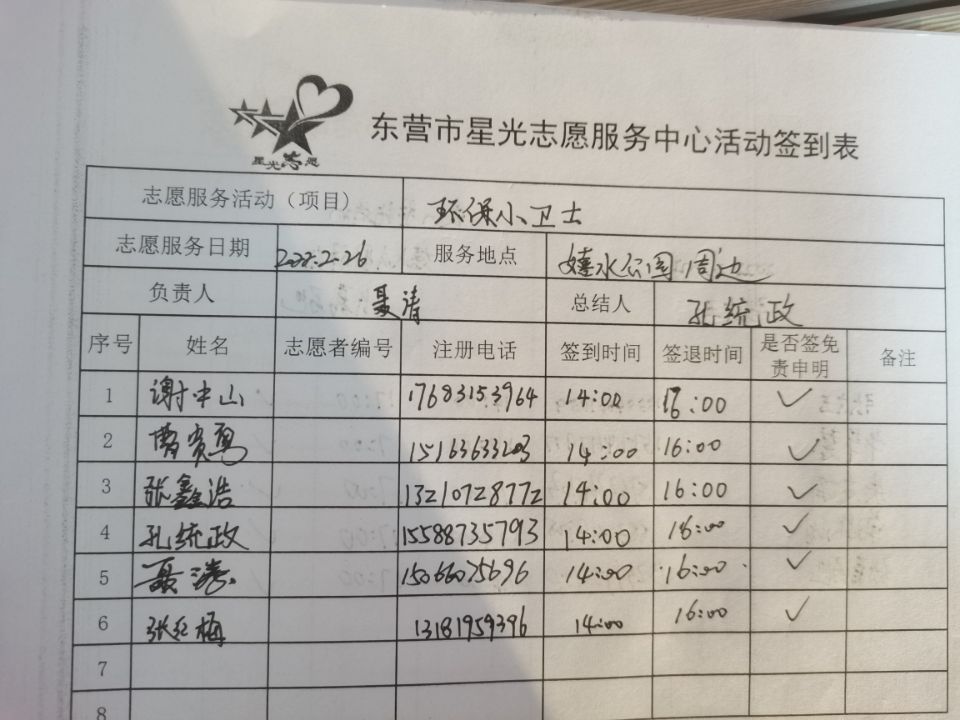 星光志愿
东营市星光志愿服务中心活动签到表
志愿服务活动（项目） 环保小卫士
志愿服务日期 2022.2.26 服务地点 嬉水公园周边
负责人 聂涛 总结人 孔统政
序号 姓名 志愿者编号 注册电话 签到时间 签退时间 是否签免责申明 备注
1 谢中山 17683153964 14:00 16:00 ✓
2 15163633203 14:00 16:00 ✓
3 张鑫浩 13210728772 14:00 16:00 ✓
4 孔统政 15588735793 14:00 16:00 ✓
5 聂涛 15066075696 14:00 16:00 ✓
6 张红梅 13181959396 14:00 16:00 ✓
7
8